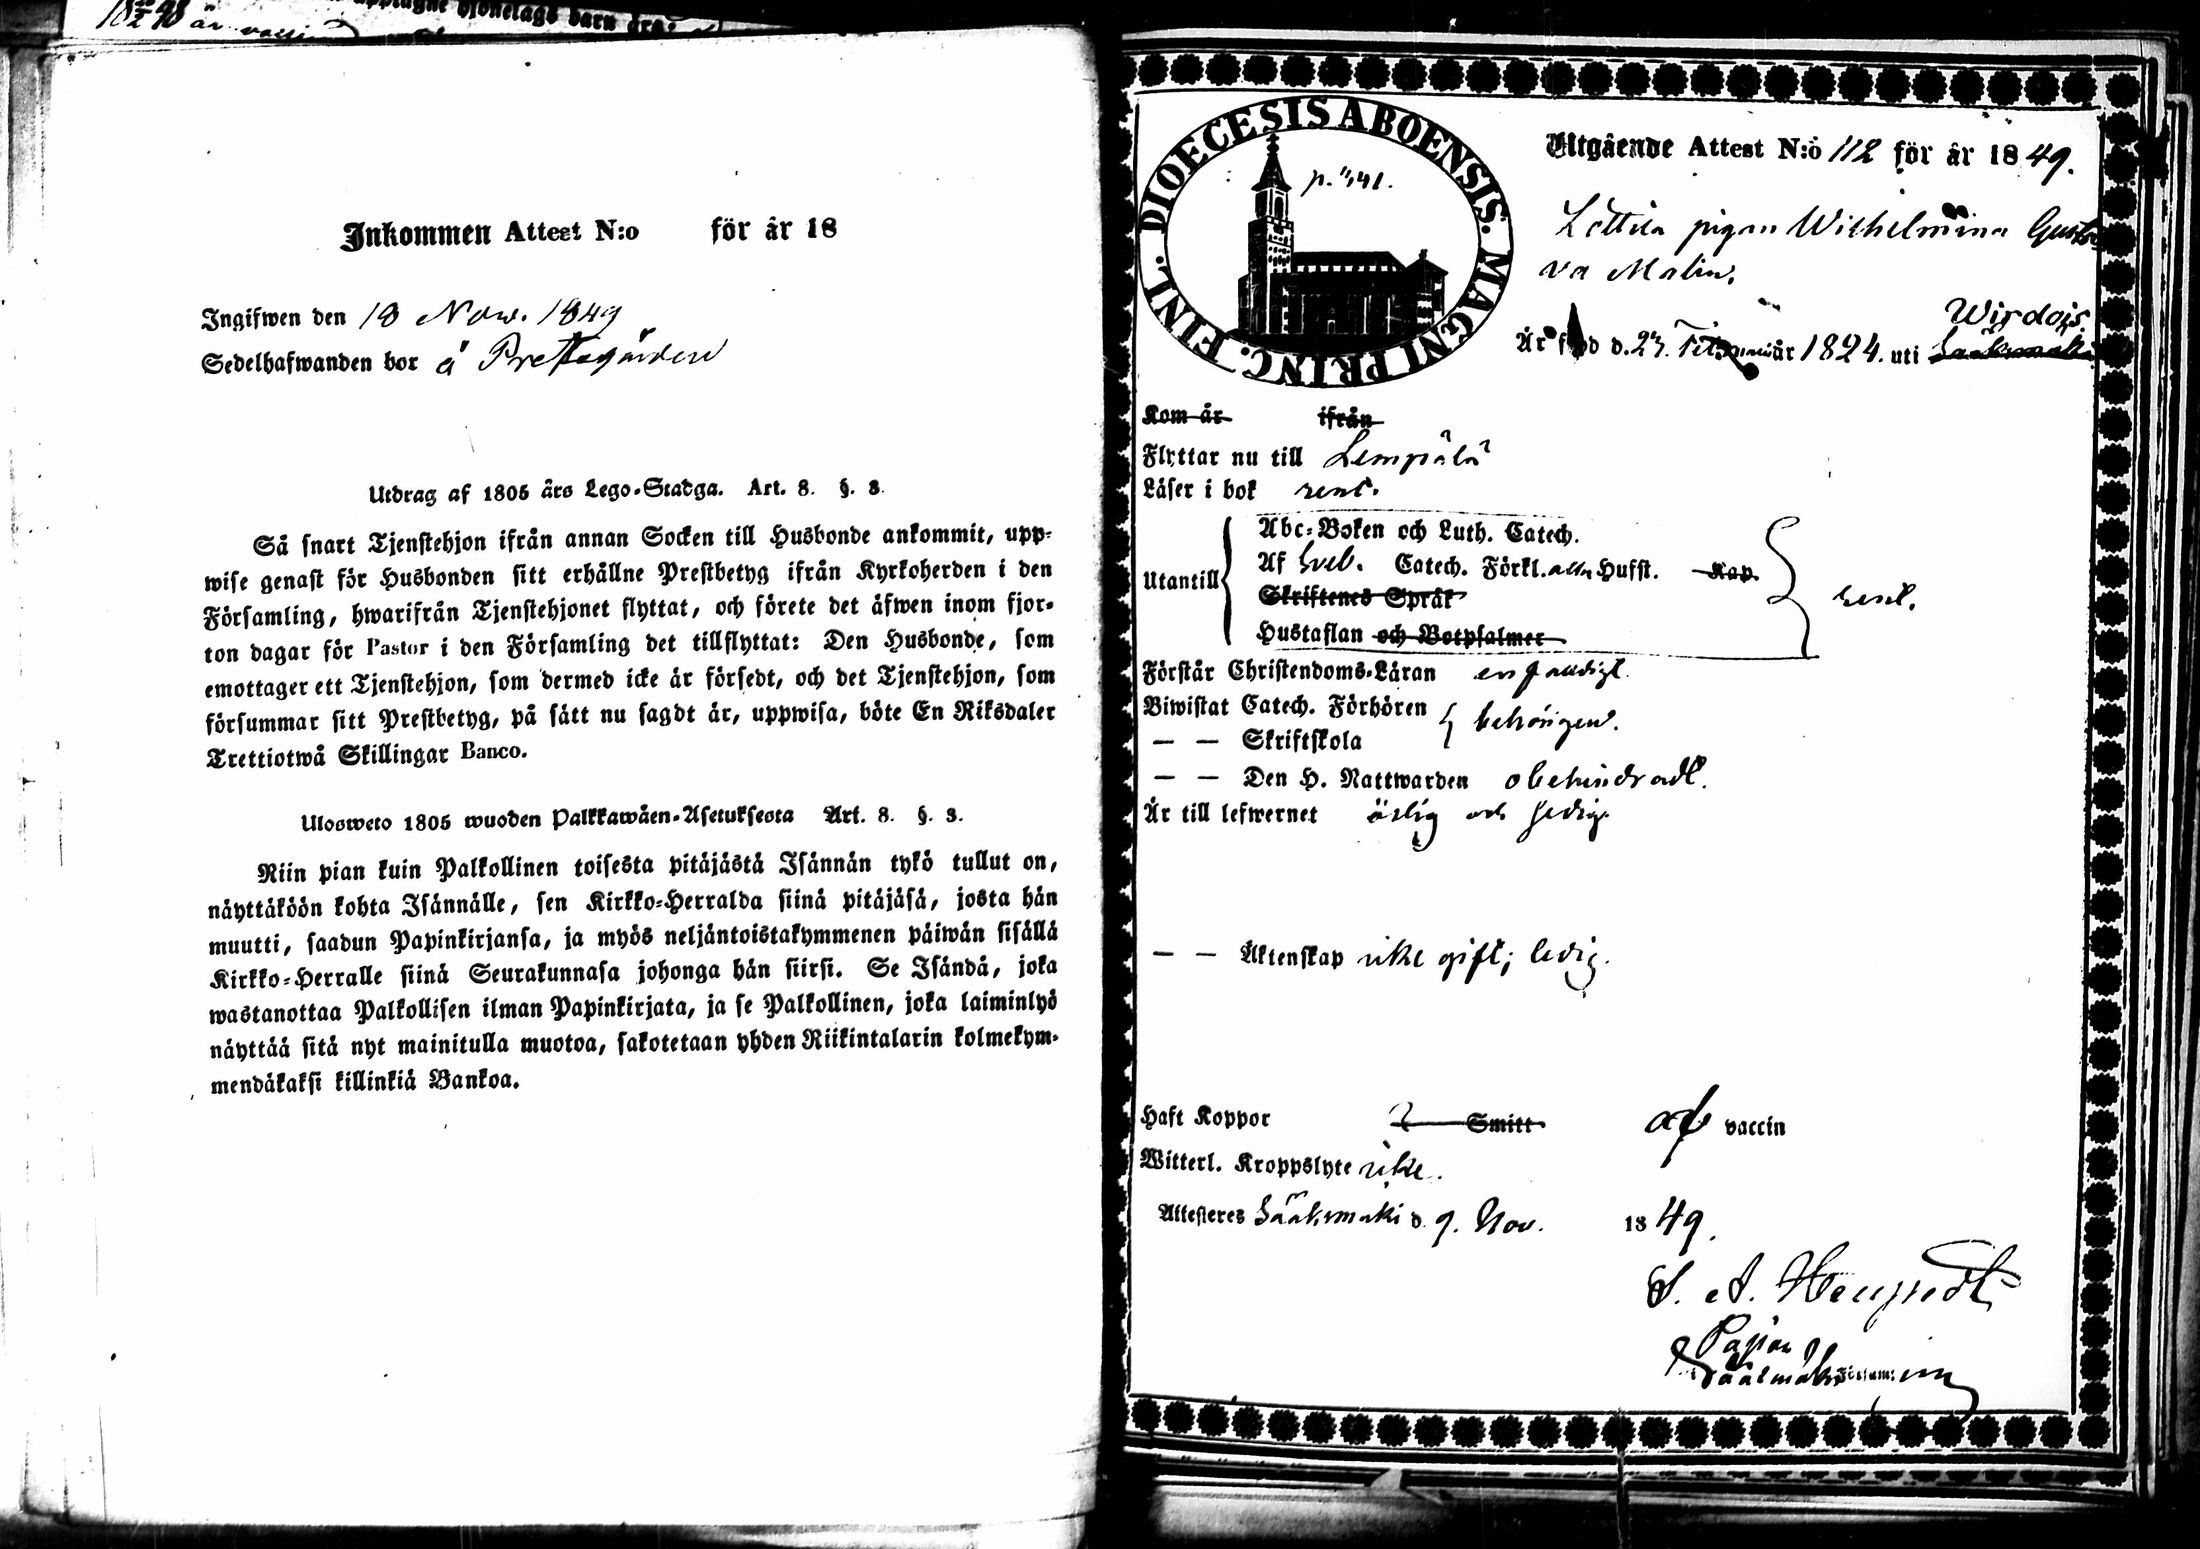 Inkommen Attest N:o för år 18
Ingifwen den 18 Nov. 1849
Sedelhafwanden bor å Prestegården
Utdrag af 1805 års Lego-Stadga. Art. 8. §. 3.
Så snart Tjenstehjon ifrån annan Socken till Husbonde ankommit, upp-
wise genast för Husbonden sitt erhållne Prestbetyg ifrån Kyrkoherden i den
Församling, hwarifrån Tjenstehjonet flyttat, och förete det äfwen inom fjor-
ton dagar för Pastor i den Församling det tillflyttat: Den Husbonde, som
emottager ett Tjenstehjon, som dermed icke är försedt, och det Tjenstehjon, som
försummar sitt Prestbetyg, på sätt nu sagdt är, uppwisa, böte En Riksdaler
Trettiotwå Skillingar Banco.
Ulosweto 1805 wuoden Palkkawäen-Asetuksesta Art. 8. §. 3.
Niin pian kuin Palkollinen toisesta pitäjästä Isännän tykö tullut on,
näyttäköön kohta Isännälle, sen Kirkko-Herralda siinä pitäjäsä, josta hän
muutti, saadun Papinkirjansa, ja myös neljäntoistakymmenen päiwän sisällä
Kirkko-Herralle siinä Seurakunnasa johonga hän siirsi. Se Isändä, joka
wastanottaa Palkollisen ilman Papinkirjata, ja se Palkollinen, joka laiminlyö
näyttää sitä nyt mainitulla muotoa, sakotetaan yhden Riikintalarin kolmekym-
mendäkaksi killinkiä Bankoa.
DIOECESIS ABOENSIS. MAGNI PRINC. FINL.
Utgående Attest N:o 112 för år 1849.
pigan Wilhelmina Gusta
va Malin.
Wirdois.
Är född d. 23. Februari år 1824. uti Sääksmäki
Kom år ifrån
Flyttar nu till Lempälä
Läser i bok rent.
Utantill
Abc-Boken och Luth. Catech.
Af Sveb. Catech. Förkl. alla Hufst. Kap.
Skriftenes Språk
Hustaflan och Botpsalmer
rent.
Förstår Christendoms-Läran enfaldigt.
Biwistat Catech. Förhören
— — Skriftskola
behörigen.
— — Den H. Nattwarden obehindradt.
Är till lefwernet ärlig och sedig.
— — Äktenskap icke gift; ledig.
Haft Koppor Smitt vaccin
Witterl. Kroppslyte icke.
Attesteres Sääksmäki d. 9. Nov. 1849.